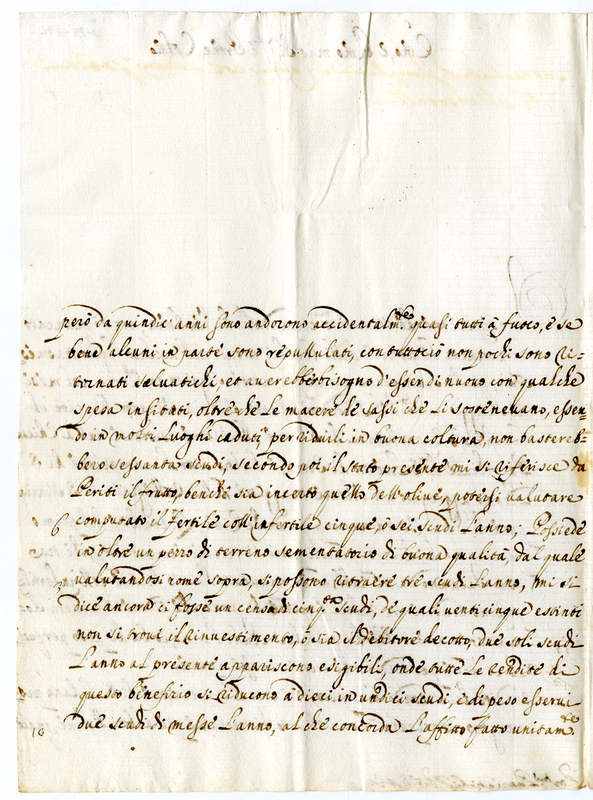 però da quindic' anni sono andorono accidentalm.te quasi tutti à fuoco, e se
bene alcuni in parte sono repullulati, con tuttociò non pochi sono ri=
tornati selvatichi, et averebber bisogno d'esser di nuovo con qualche
spesa insitati, oltre che le macere de sassi che li sostenevano, essen=
do in molti luoghi caduti, per ridurli in buona coltura, non bastereb=
bero sessanta scudi, secondo poi il stato presente mi si riferisce da
Periti il frutto, benche sia incerto quello dell'olive, potersi valutare
computato il fertile coll'infertile cinque, ò sei scudi l'anno; Possiede
in oltre un pezzo di terreno sementatorio di buona qualità, dal quale
valutandosi come sopra, si possono ritraere tre scudi l'anno, mi si
dice ancora ci fosse un censo di cinq.ta scudi, de quali venticinque estinti
non si trovi il rinvestimento, ò sia il debitore decotto, due soli scudi
l'anno al presente appariscono esigibili, onde tutte le rendite di
questo benefizio si riducono à dieci in undici scudi, e di peso esservi
due scudi di messe l'anno, al che concorda l'affitto fatto unitam.te
6
10